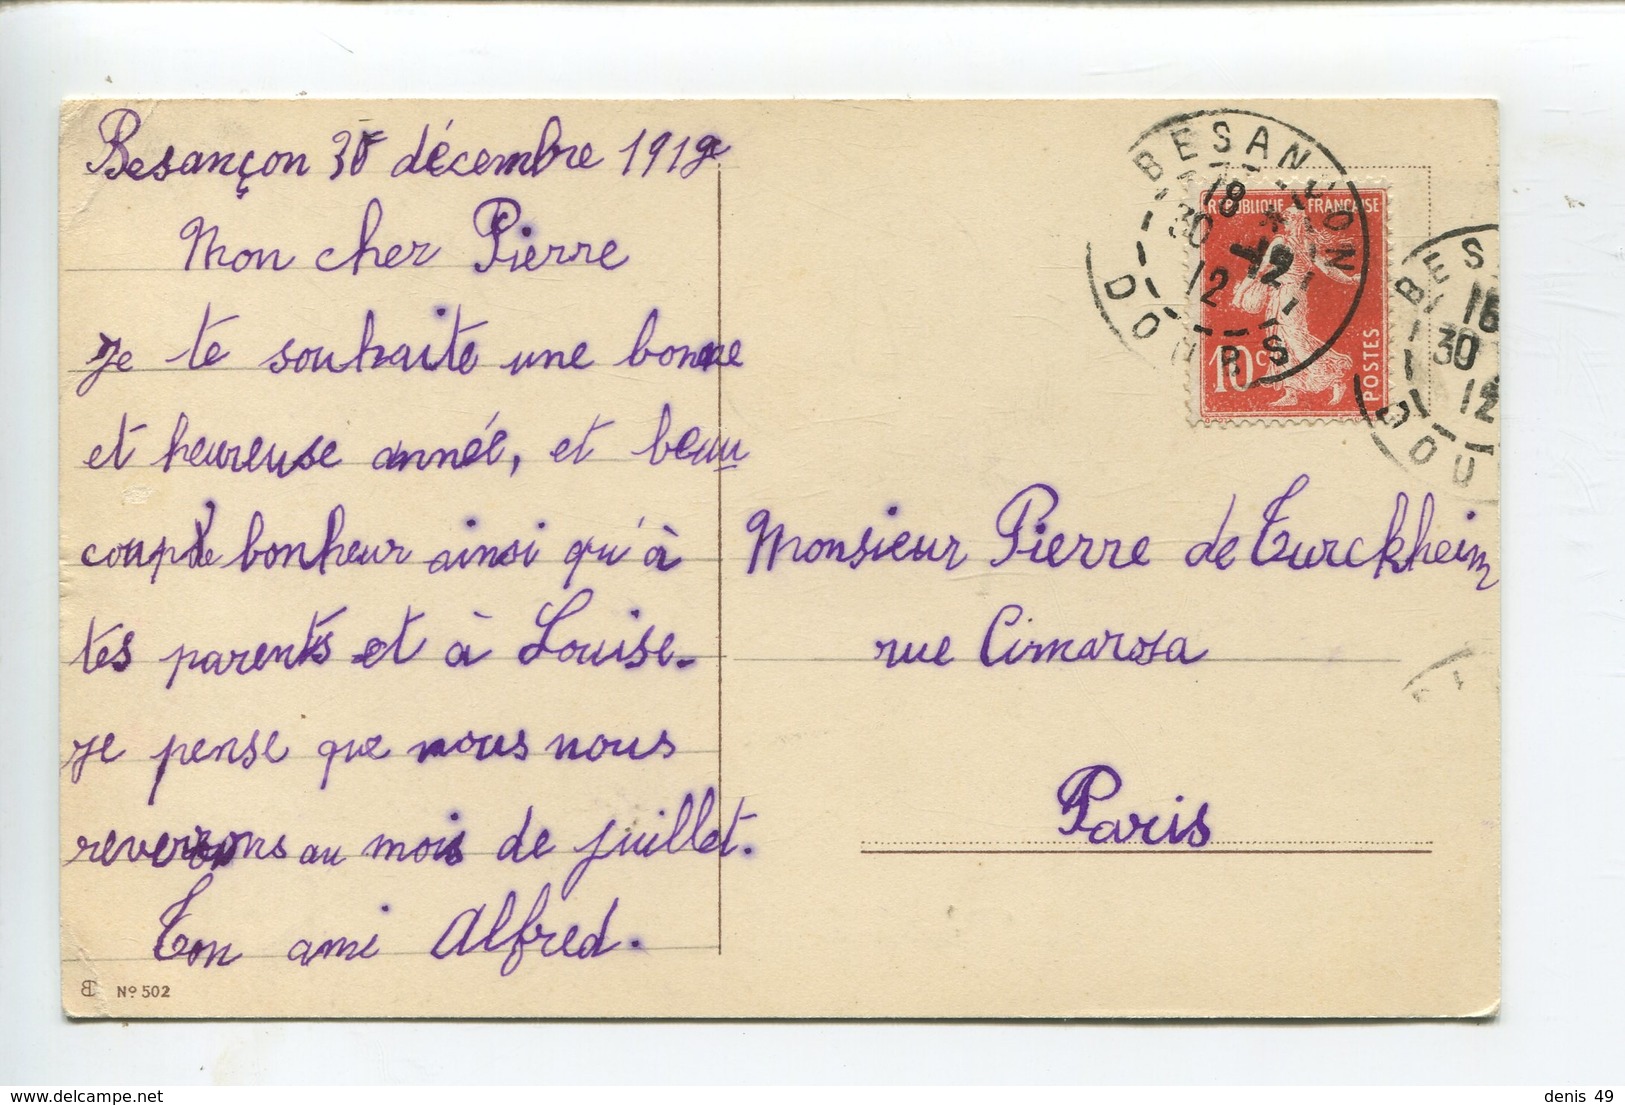 Besançon 30 décembre 191
Mon cher Pierre
je te souhaite une bonne
et heureuse année, et beau
coup de bonheur ainsi qu'à
tes parents et à Louise.
je pense que nous nous
reverrons au mois de juillet.
Ton ami Alfred.
Nº 502
BESANÇON
18
30
12
DOUBS
RÉPUBLIQUE FRANÇAISE
10c
POSTES
BES
16
30
12
DOU
Monsieur Pierre de Turckheim
rue Cimarosa
Paris
denis 49